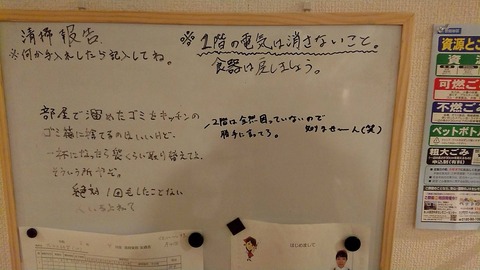 清掃報告
※何か手入れしたら記入してね。
※1階の電気は消さないこと。
食器は戻しましょう。
部屋で溜めたゴミをキッチンの
ゴミ箱に捨てるのはいいけど、
一杯になったら袋くらい取り替えてよ、
そういう所だぞ。
絶対1回もしたことない
2階は全然困っていないので
勝手に言ってろ。
知りませーん(笑)
はじめまして
資源とご
資源
可燃ご
不燃ご
ペットボト
粗大ごみ
申込制(有料)